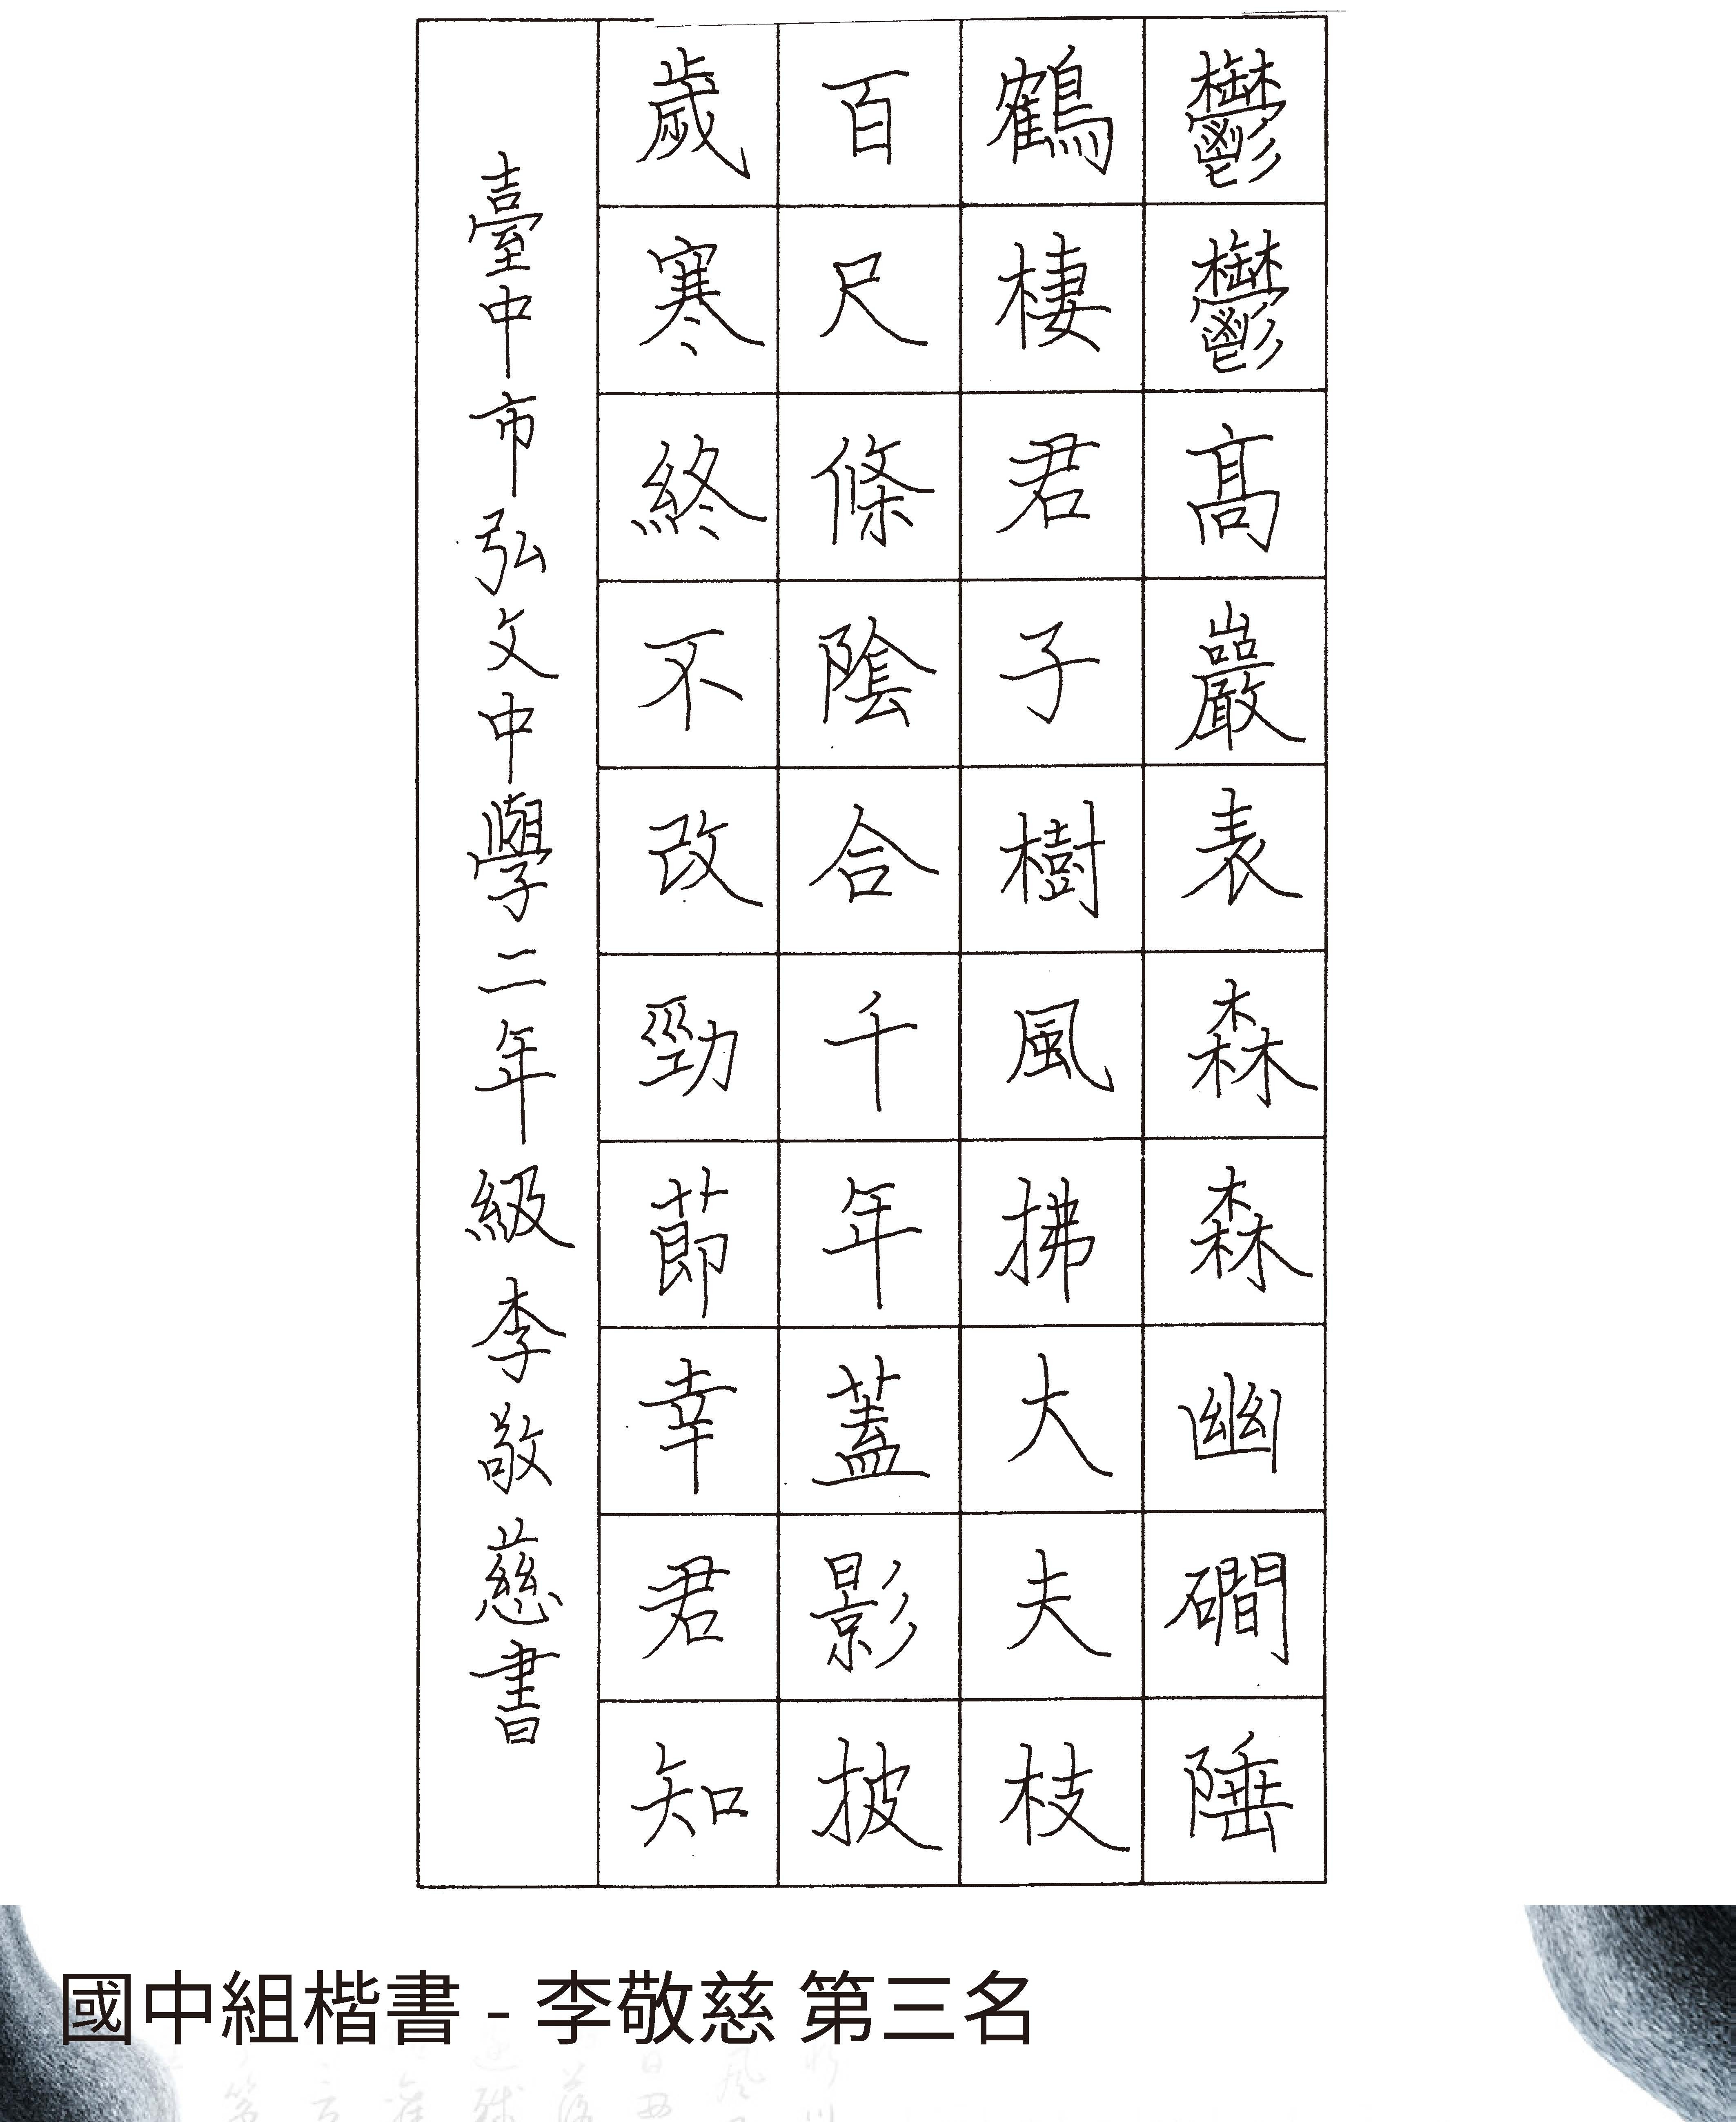 鬱鬱高巖表森森幽磵陲
鶴棲君子樹風拂大夫枝
百尺條陰合千年蓋影披
歲寒終不改勁節幸君知
臺中市弘文中學二年級李敬慈書
國中組楷書 - 李敬慈 第三名